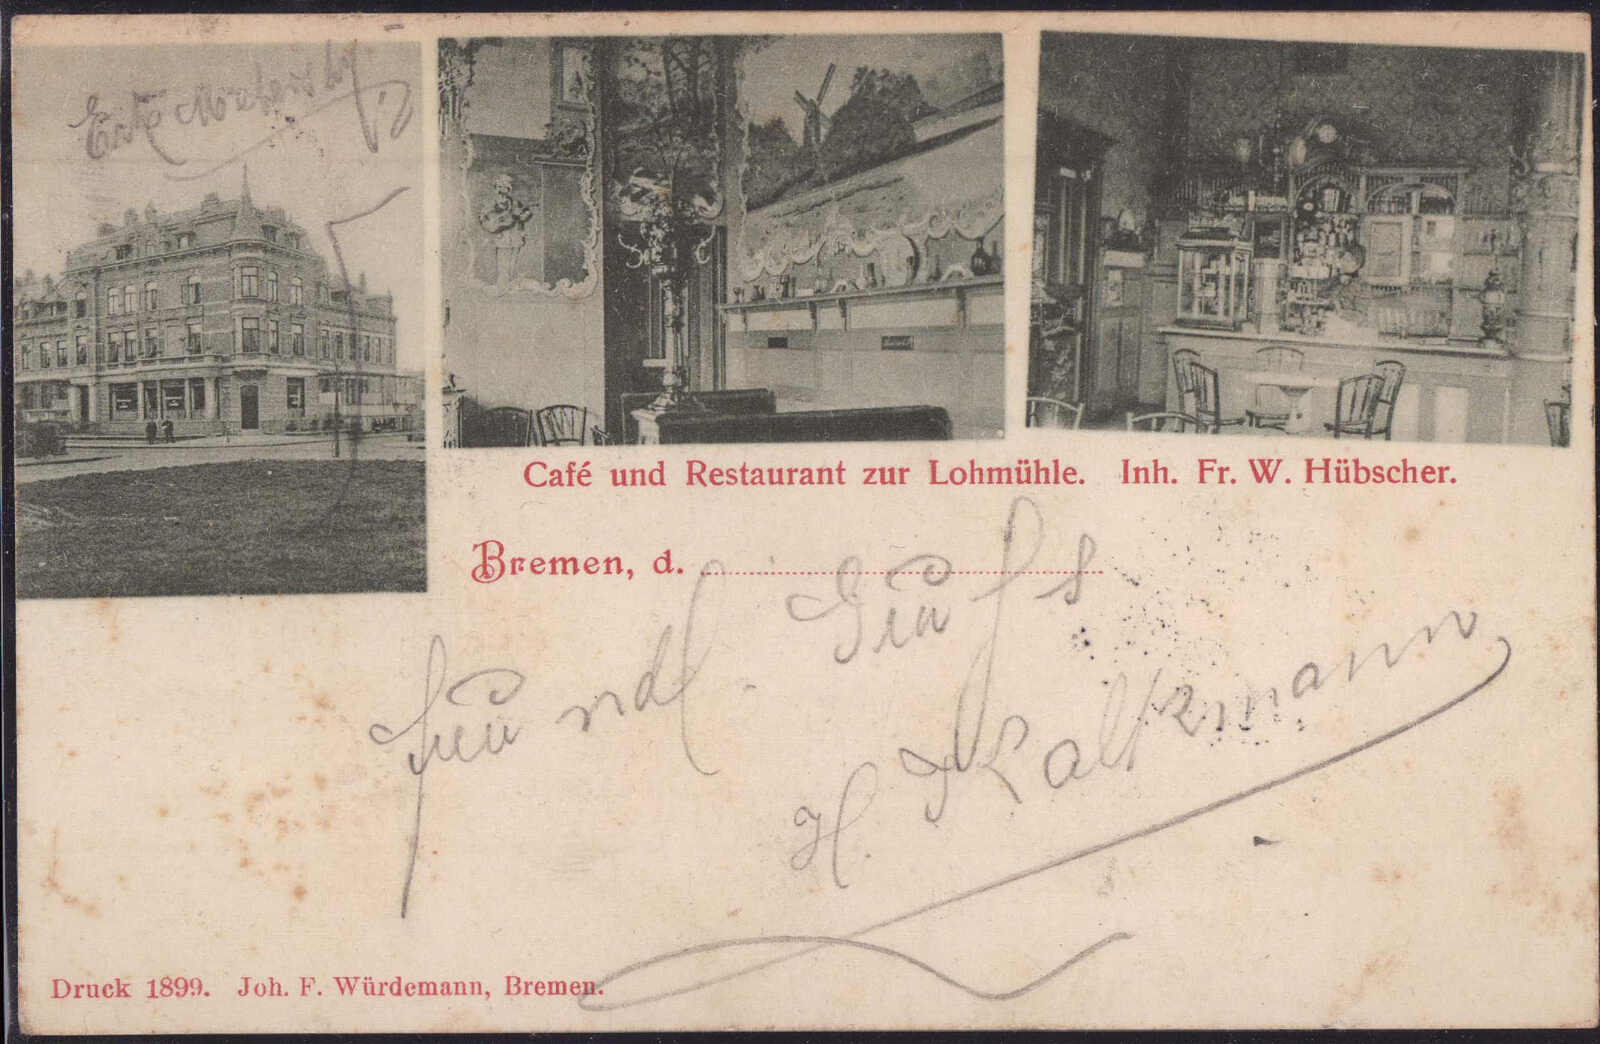 Ecke
Café und Restaurant zur Lohmühle. Inh. Fr. W. Hübscher.
Bremen, d.
Freundl. Gruß
H. Kaltzmann
Druck 1899. Joh. F. Würdemann, Bremen.